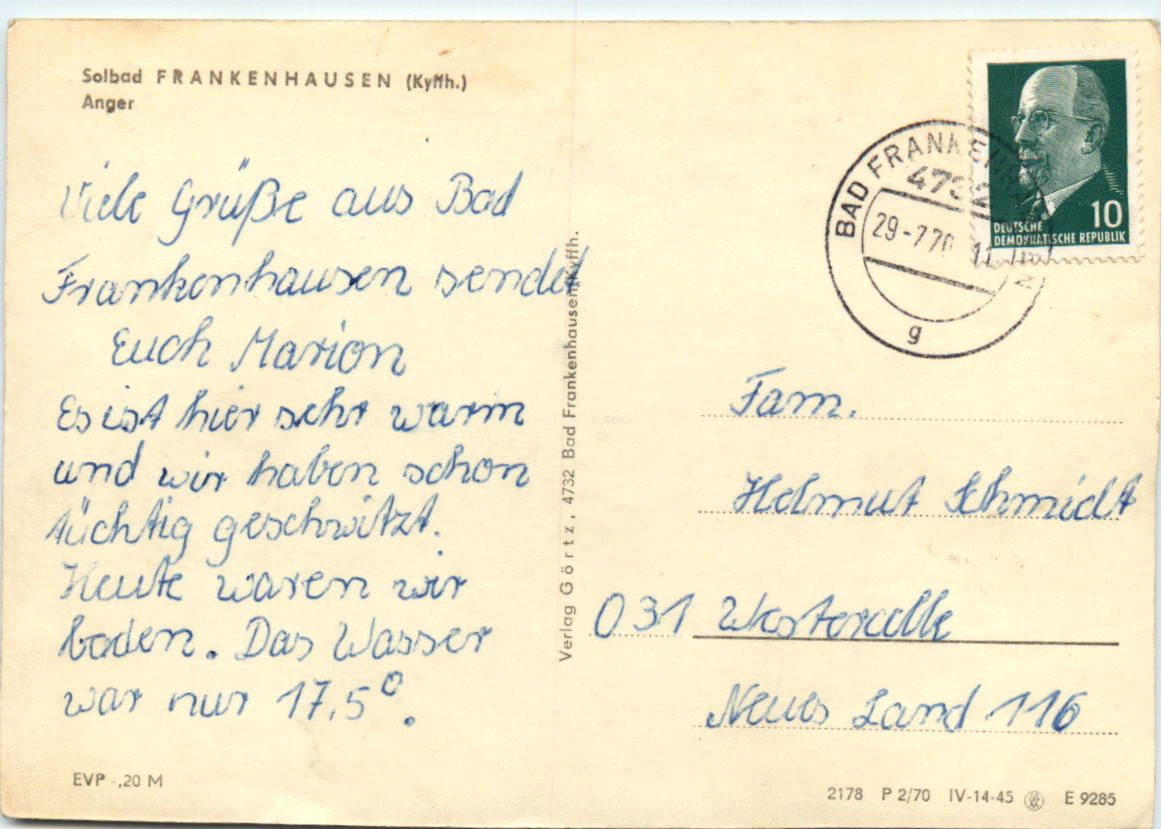 Solbad FRANKENHAUSEN (Kyffh.)
Anger
Viele Grüße aus Bad
Frankenhausen sendet
Euch Marion
Es ist hier sehr warm
und wir haben schon
tüchtig geschwitzt.
Heute waren wir
baden. Das Wasser
war nur 17,5°.
EVP -,20 M
Verlag Görtz, 4732 Bad Frankenhausen/Kyffh.
10
DEUTSCHE
DEMOKRATISCHE REPUBLIK
BAD FRANKENHAUSEN
4732
29-7.70
g
Fam.
Helmut Schmidt
031 Westercelle
Neues Land 116
2178 P 2/70 IV-14-45 E 9285